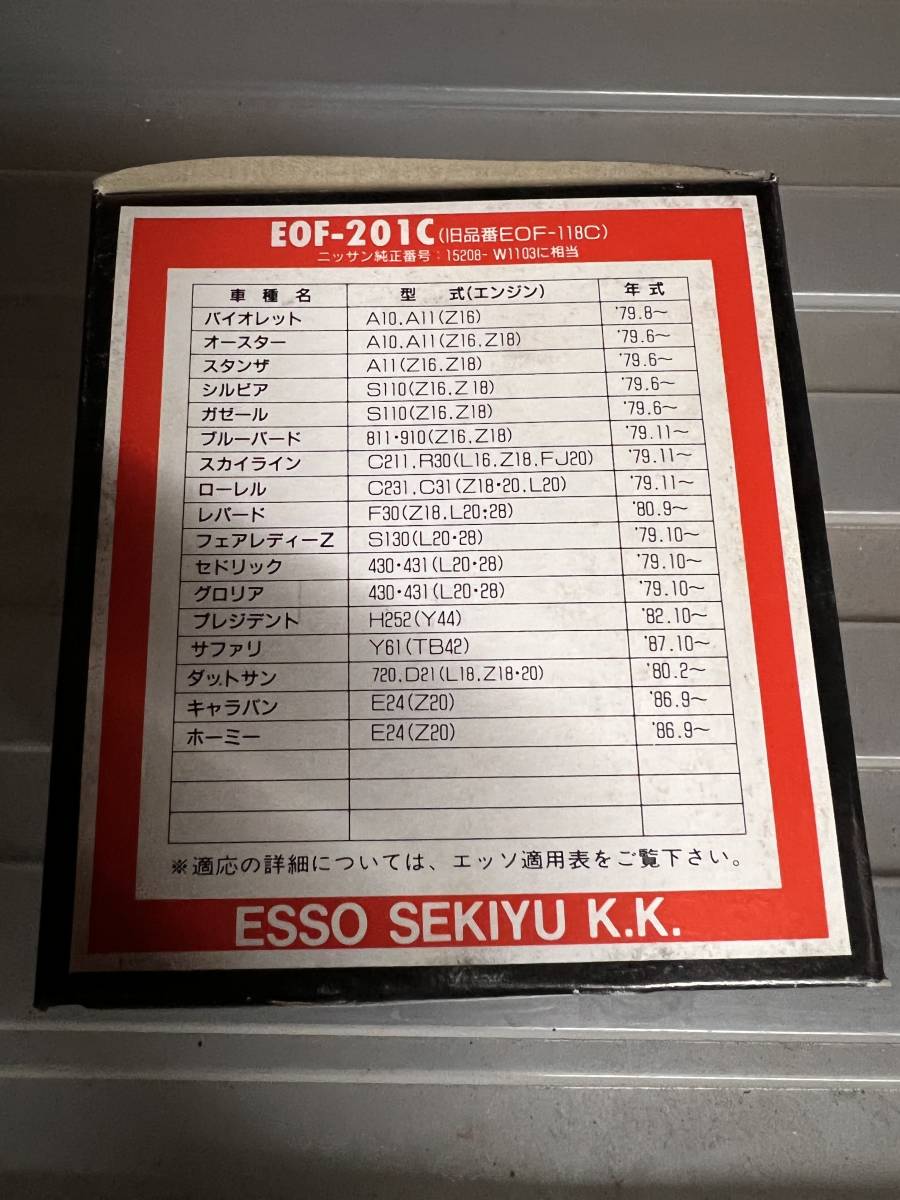 EOF-201C(旧品番EOF-118C)
ニッサン純正番号：15208-W1103に相当
車種名 型式(エンジン) 年式
バイオレット A10.A11(Z16) '79.8〜
オースター A10.A11(Z16.Z18) '79.6〜
スタンザ A11(Z16.Z18) '79.6〜
シルビア S110(Z16.Z18) '79.6〜
ガゼール S110(Z16.Z18) '79.6〜
ブルーバード 811・910(Z16.Z18) '79.11〜
スカイライン C211.R30(L16.Z18.FJ20) '79.11〜
ローレル C231.C31(Z18・20.L20) '79.11〜
レパード F30(Z18.L20・28) '80.9〜
フェアレディーZ S130(L20・28) '79.10〜
セドリック 430・431(L20・28) '79.10〜
グロリア 430・431(L20・28) '79.10〜
プレジデント H252(Y44) '82.10〜
サファリ Y61(TB42) '87.10〜
ダットサン 720.D21(L18.Z18・20) '80.2〜
キャラバン E24(Z20) '86.9〜
ホーミー E24(Z20) '86.9〜
※適応の詳細については、エッソ適用表をご覧下さい。
ESSO SEKIYU K.K.